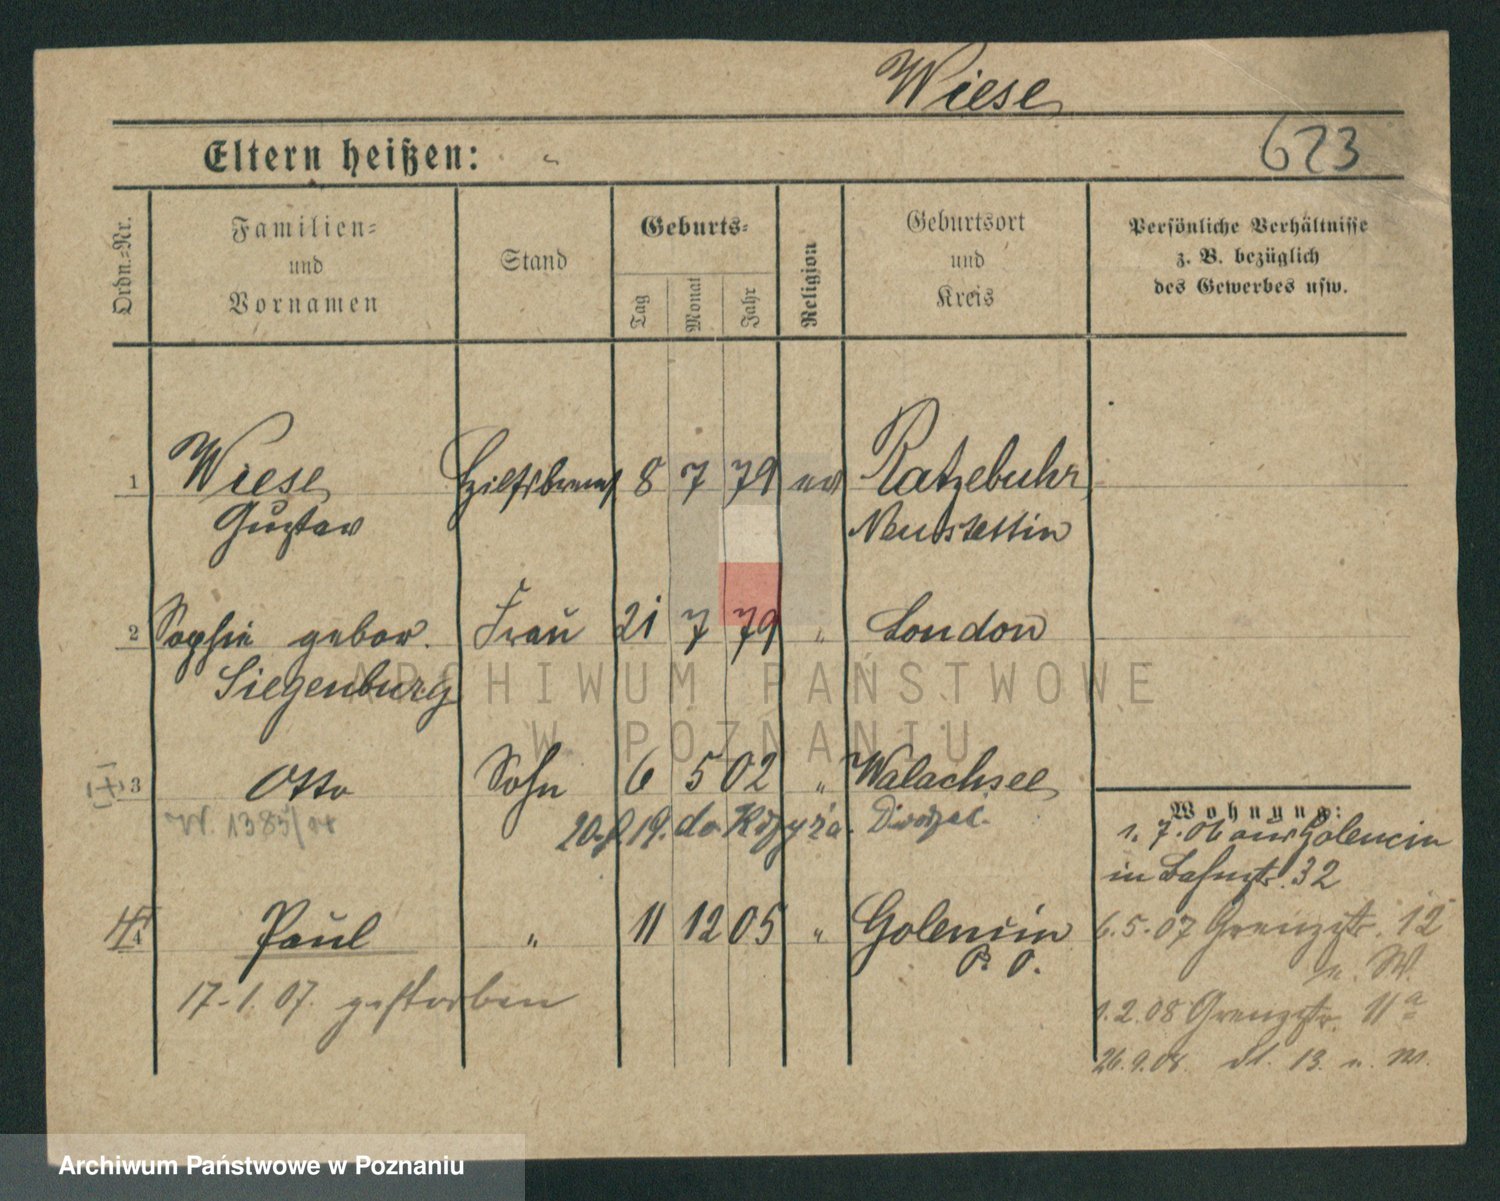 Wiese
623
Eltern heißen:
Ordn.-Nr.
Familien-
und
Vornamen
Stand
Geburts-
Tag
Monat
Jahr
Religion
Geburtsort
und
Kreis
Persönliche Verhältnisse
z. B. bezüglich
des Gewerbes usw.
1 Wiese Hilfsbrems 8 7 79 ev Ratzebuhr
Gustav Neustettin
2 Sophie gebor. Frau 21 7 79 " London
Siegenburg
ARCHIWUM PAŃSTWOWE
W POZNANIU
3 Otto Sohn 6 5 02 " Walachsee
Wohnung:
W. 1385/
19. do Krzyża
1. 7. 06 aus Golencin
in Bahnstr. 32
4 Paul " 11 12 05 " Golencin
P. O.
6. 5. 07 Grenzstr. 12
n. W.
17. 1. 07. gestorben
1. 2. 08 Grenzstr. 11a
26. 9. 08. dt. 13. n. W.
Archiwum Państwowe w Poznaniu